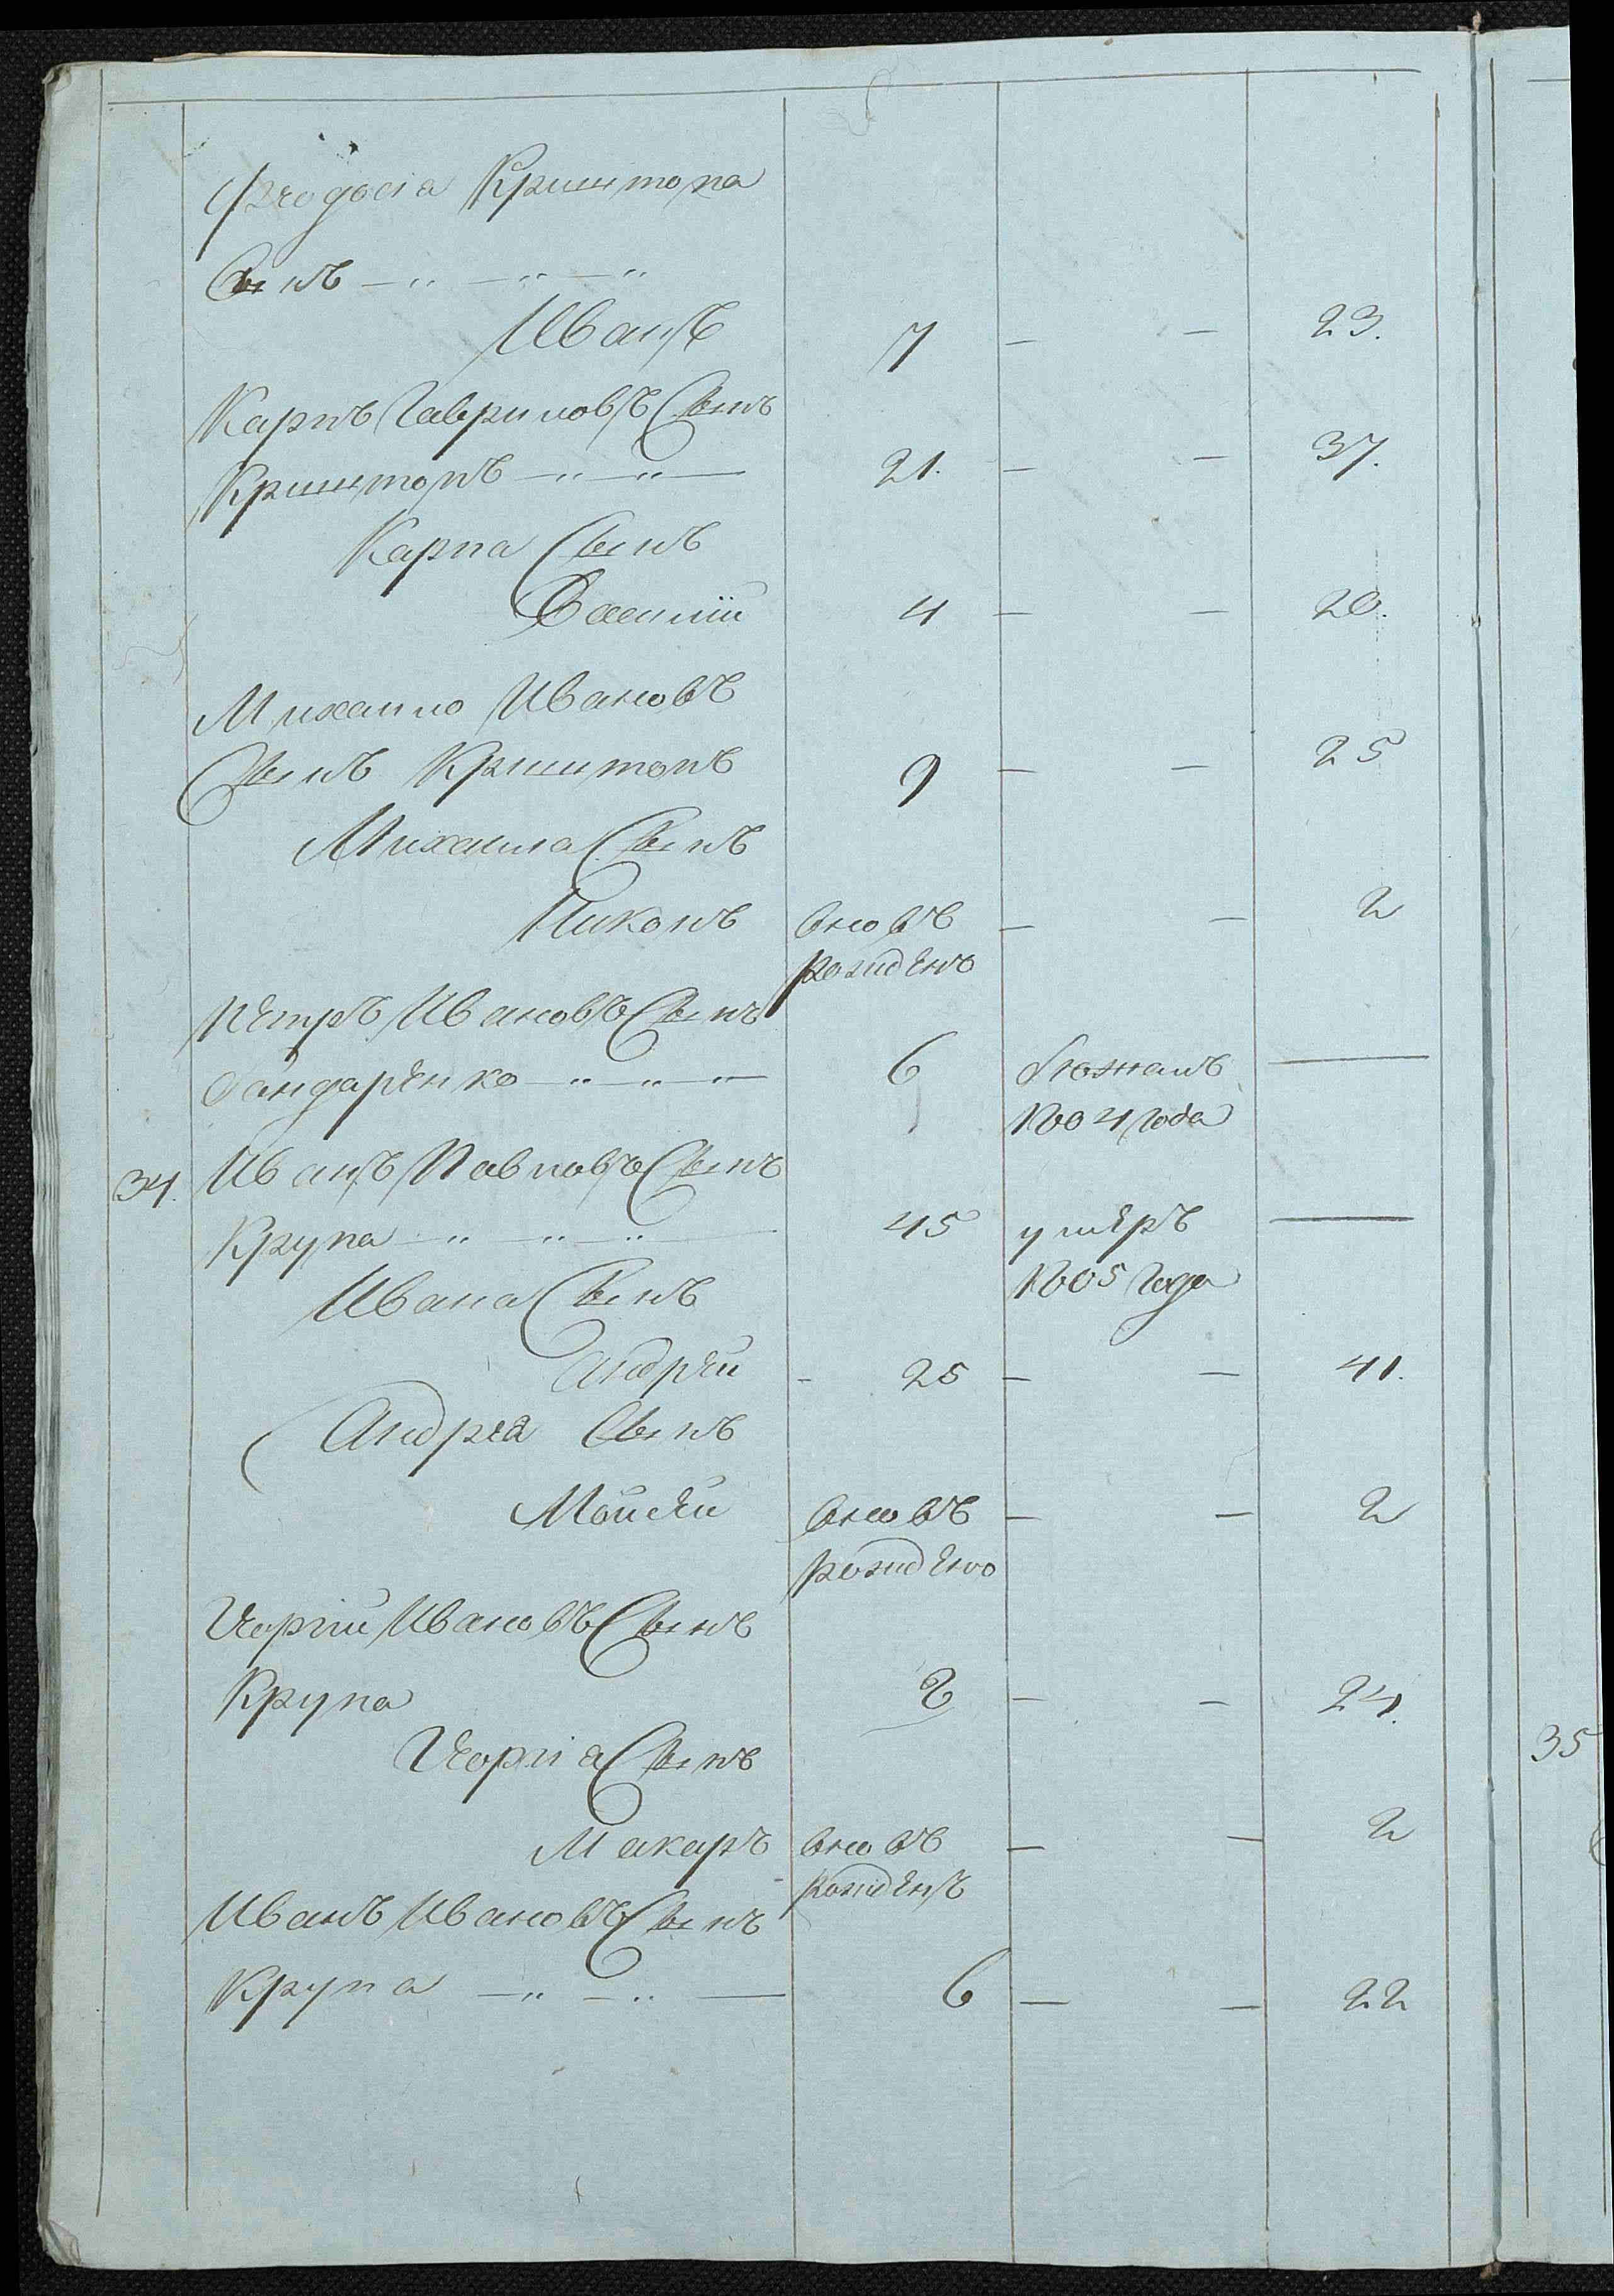 Феодосiа Криштопа
Сынъ — " — " — "
Иванъ 7 — — 23.
Карпъ Гавриловъ Сынъ
Криштопъ — " — " — 21. — — 37.
Карпа Сынъ
Василiй 4 — — 20.
Михаило Ивановъ
Сынъ Криштопъ 9 — — 25
Михаила Сынъ
Никонъ вновъ — — 2
рожденъ
Петръ Ивановъ Сынъ
Бондаренко — " — " — " 6 бежалъ —
1804 года
34. Иванъ Павловъ Сынъ
Крупа — " — " — " — 45 умеръ —
1805 года
Ивана Сынъ
Андрей - 25 — — 41.
Андреа Сынъ
Мойсей вновъ — — 2
рожденъ
Георгiй Ивановъ Сынъ
Крупа 8 — — 24.
Георгiа Сынъ
Макаръ вновъ — — 2
рожденъ
Иванъ Ивановъ Сынъ
Крупа — " — " — 6 — — 22
35